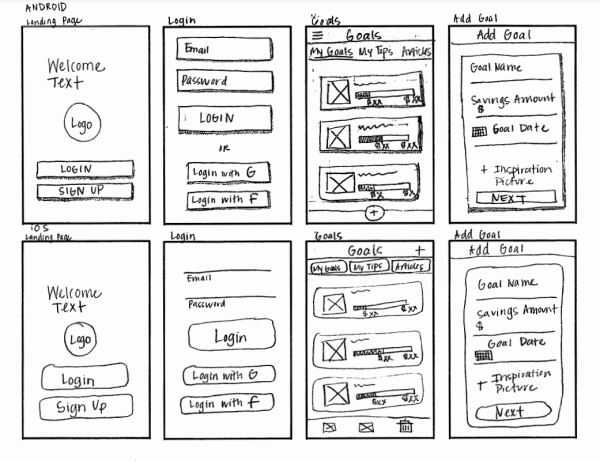 ANDROID
Landing Page
Welcome
Text
Logo
LOGIN
SIGN UP
Login
Email
Password
LOGIN
OR
Login with G
Login with F
Goals
Goals
My Goals My Tips Articles
$xx $xx
$xx $xx
$xx $xx
+
Add Goal
Add Goal
Goal Name
Savings Amount
$
Goal Date
+ Inspiration
Picture
NEXT
iOS
Landing Page
Welcome
Text
Logo
Login
Sign Up
Login
Email
Password
Login
Login with G
Login with F
Goals
Goals +
My Goals My Tips Articles
$xx $xx
$xx $xx
$xx $xx
Add Goal
Add Goal
Goal Name
Savings Amount
$
Goal Date
+ Inspiration
Picture
Next